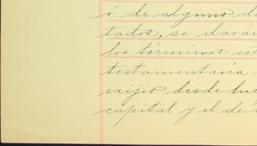 ó de alguno d
tados, se dará
los términos es
testamentaria
exijir desde lue
capital y el de